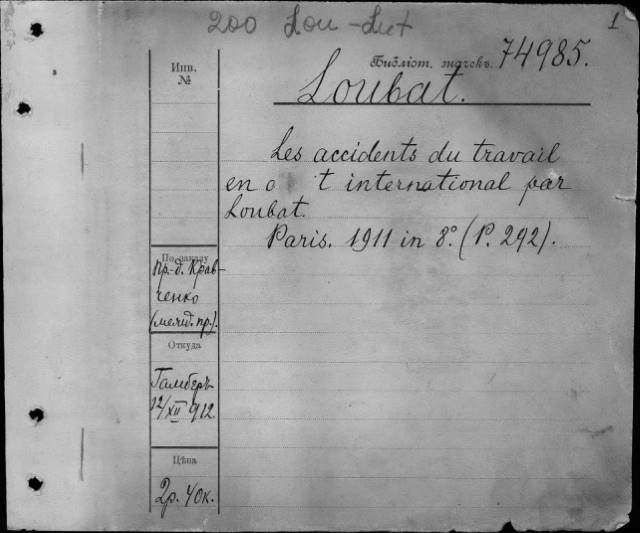 200 Lou-Lut
1
Библіот. значекъ. 74985.
Loubat.
Инв.
№
Les accidents du travail
en o t international par
Loubat.
Paris. 1911 in 8º. (P. 292).
По заказу
пр-д. Крав-
ченко
(межд. пр.).
Откуда
12/XII 912.
Цѣна
2р. 40к.